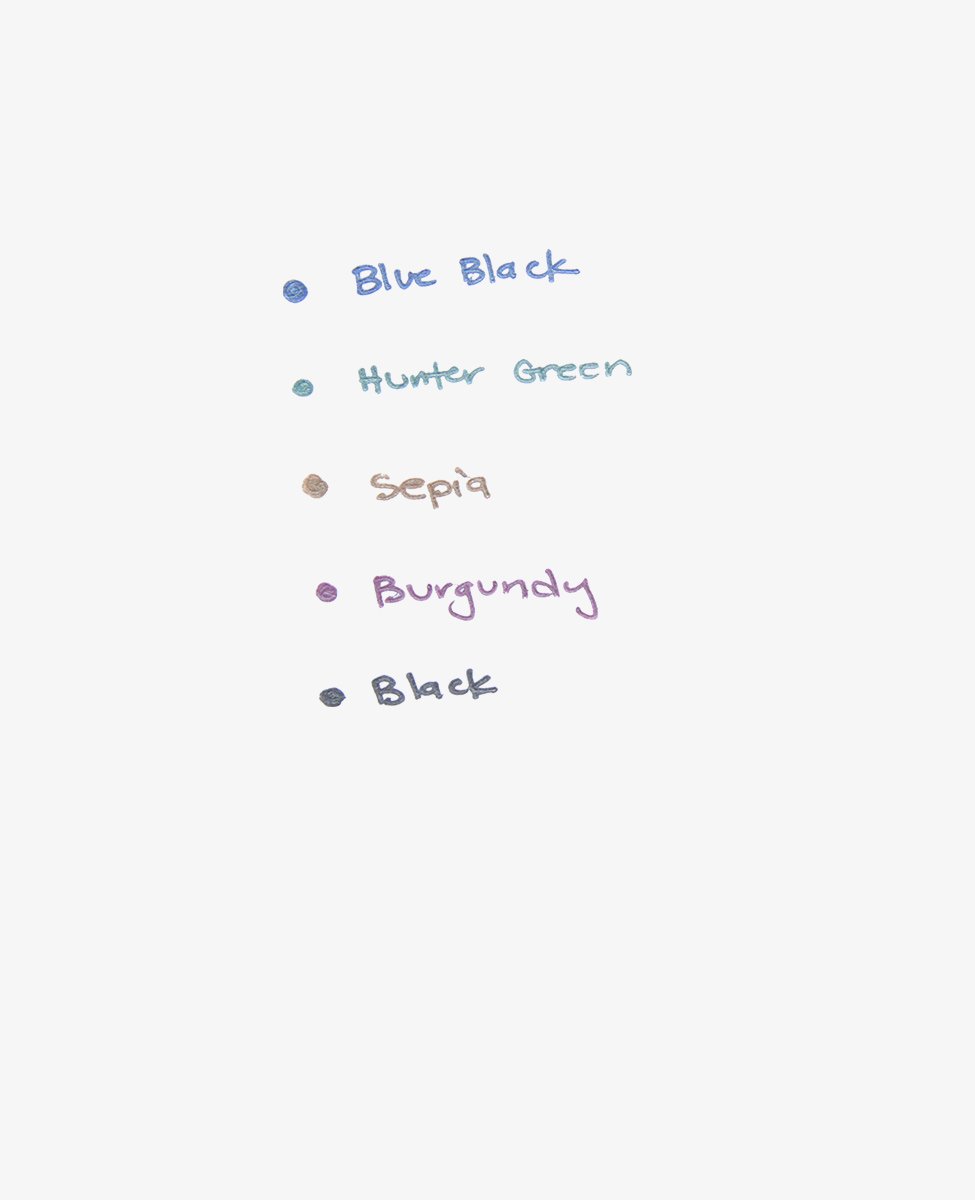 Blue Black
Hunter Green
Sepia
Burgundy
Black